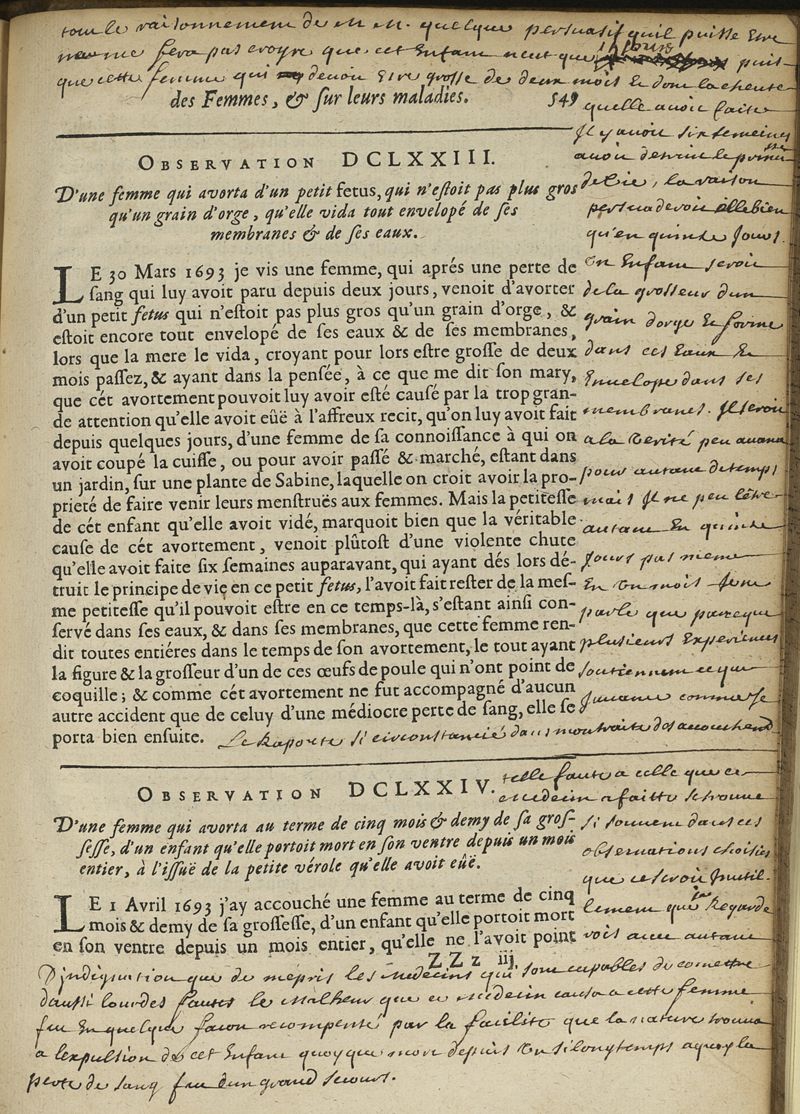 tout le raisonnement de M M. quelque persuasif qu'il puisse Etre
ne me fera pas croyre que cet Enfant n'eut que 15 jours puis
que cette femme qui devoit Etre grosse de deux mois Et dont la cheute
des Femmes, & ſur leurs maladies. 549
quelle avoit faite
Il y avoit six semeines
avoit detruit le principe
de vie, la raison
persuaderoit Elle bien
qu'en quinze Jours
Un Enfant seroit
de la grosseur d'un
grain d'orge Et formé
dans ces Eaux Et
Envelopé dans ses
membranes. Il seroit
a la verité peu avancé
pour autant de temps
mais Il ne peu l'être
autant En quinze
Jours pas meme
En Un mois Je ne
parle que parceque
plusieurs Experiences
soutiennent ce que
J'avance comme Je
OBSERVATION DCLXXIII.
D'une femme qui avorta d'un petit fetus, qui n'eſtoit pas plus gros
qu'un grain d'orge, qu'elle vida tout envelopé de ſes
membranes & de ſes eaux.
LE 30 Mars 1693 je vis une femme, qui aprés une perte de
ſang qui luy avoit paru depuis deux jours, venoit d'avorter
d'un petit fetus qui n'eſtoit pas plus gros qu'un grain d'orge, &
eſtoit encore tout envelopé de ſes eaux & de ſes membranes,
lors que la mere le vida, croyant pour lors eſtre groſſe de deux
mois paſſez, & ayant dans la penſée, à ce que me dit ſon mary,
que cét avortement pouvoit luy avoir eſté cauſé par la trop gran-
de attention qu'elle avoit eûë à l'affreux recit, qu'on luy avoit fait
depuis quelques jours, d'une femme de ſa connoiſſance à qui on
avoit coupé la cuiſſe, ou pour avoir paſſé & marché, eſtant dans
un jardin, ſur une plante de Sabine, laquelle on croit avoir la pro-
prieté de faire venir leurs menſtruës aux femmes. Mais la petiteſſe
de cét enfant qu'elle avoit vidé, marquoit bien que la véritable
cauſe de cét avortement, venoit plûtoſt d'une violente chute
qu'elle avoit faite ſix ſemaines auparavant, qui ayant dés lors dé-
truit le principe de vie en ce petit fetus, l'avoit fait reſter de la meſ-
me petiteſſe qu'il pouvoit eſtre en ce temps-là, s'eſtant ainſi con-
ſervé dans ſes eaux, & dans ſes membranes, que cette femme ren-
dit toutes entiéres dans le temps de ſon avortement, le tout ayant
la figure & la groſſeur d'un de ces œufs de poule qui n'ont point de
coquille; & comme cét avortement ne fut accompagné d'aucun
autre accident que de celuy d'une médiocre perte de ſang, elle ſe
porta bien enſuite.
Le Raporte si circonstancié dans mon traité des accouchemd
OBSERVATION DCLXXIV.
D'une femme qui avorta au terme de cinq mois & demy de ſa groſ-
ſeſſe, d'un enfant qu'elle portoit mort en ſon ventre depuis un mois
entier, à l'iſſuë de la petite vérole qu'elle avoit eûë.
LE 1 Avril 1693 j'ay accouché une femme au terme de cinq
mois & demy de ſa groſſeſſe, d'un enfant qu'elle portoit mort
en ſon ventre depuis un mois entier, qu'elle ne l'avoit point
ZZz iij
telle faute a celle que ce
medecin a faitte se trouve
si souvent dans ces
observations choisies
que ce seroit Inutil-
lement que Regarde
rois avec autant
D'indignation que de mépris les medecins qui sont capables de cometre
d'aussi lourdes fautes le Malheur que ce Medecin causa a cette femme
fut En quelque facon recompensé par la facilité que la nature trouva
a l'expulsion de cet Enfant quoyque mort depuis Un si long temps a quoy la
perte de sang fut d'un grand secours.